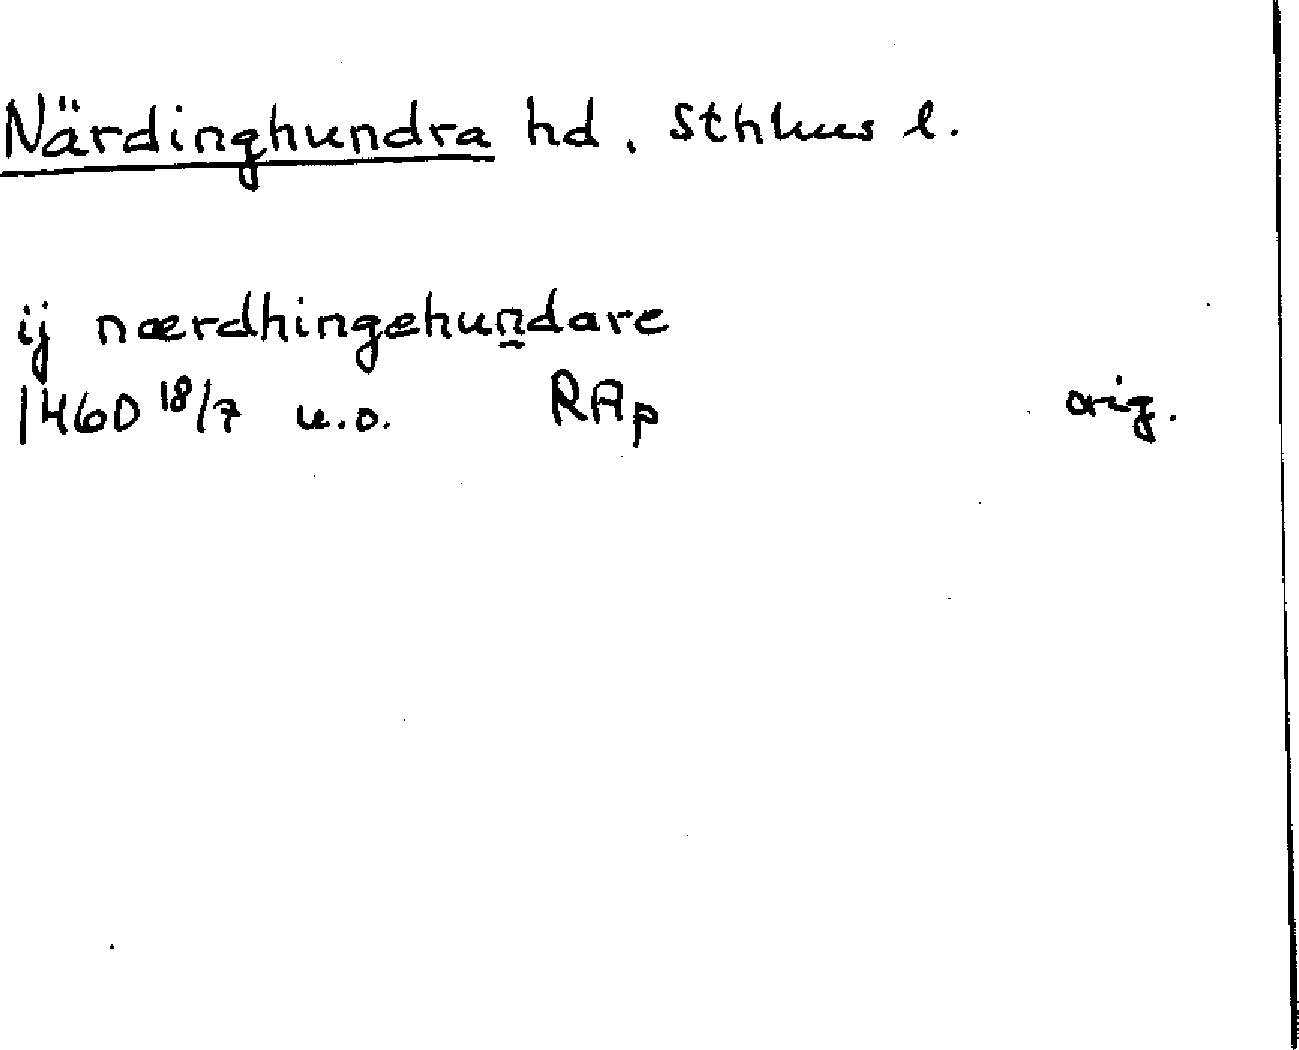 Närdinghundra hd. Sthlms l.
ij nærdhingehundare
1460 18/7 u.o. RAp orig.